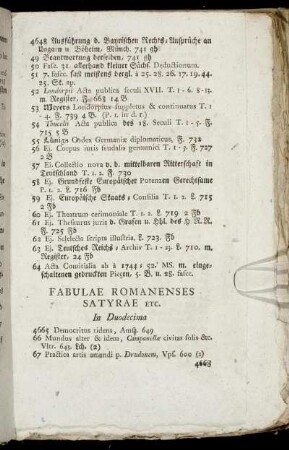 4648 Ausführung d. Bayrischen Rechts-Ansprüche an
Ungarn u Böheim. Münch. 741 gh
49 Beantwortung derselben. 741 gh
50 Fasc. 31. allerhand kleiner Sächs. Deductionum.
51 7. fasc. fast meistens dergl. à 25. 28. 26. 17. 19. 44.
25. St. ap.
52 Londorpii Acta publica seculi XVII. T. 1 - 6. 8-13.
m. Register. F. 668 14 B
53 Meyers Londorpius suppletus & continuatus T. 1
- 4. F. 739 4 B. (P. 1. in d. r)
54 Thucelii Acta publica des 18. Seculi T. 1 - 5. F.
715 5 B
55 Lünigs Codex Germaniæ diplomaticus, F. 732
56 Ej. Corpus iuris feudalis germanici T. 1 - 3. F. 727
2 B
57 Ej. Collectio nova v. d. mittelbaren Ritterschaft in
Teutschland T. 1. 2. F. 730
58 Ej. Grundfeste Europäischer Potenzen Gerechtsame
P. 1. 2. L. 716 Fb
59 Ej. Europäische Staats, Consilia T. 1. 2. L. 715
2 Fb
60 Ej. Theatrum cerimoniale T. 1. 2. L. 719 2 Fb
61 Ej. Thesaurus juris d. Grafen u. Hhl. des H. R. R.
F. 725 Fb
62 Ej. Selectæ scripta illustria, L. 723. Fb
63 Ej. Teutsches Reichs, Archiv T. 1 - 23. L. 710. m.
Register. 24 Fb
64 Acta Comitialia ab à 1744 : 52.' MS. m. einge-
schaltenen gedruckten Piecen, 5. B. u. 28. fasc.
FABULAE ROMANENSES
SATYRAE ETC.
In Duodecimo
4665 Democritus ridens, Amst. 649
66 Mundus alter & idem, Campanellæ civitas solis &c.
Vltr. 643. Lch. (2)
67 Practica artis amandi p. Drudonem, Vps. 600 (2)
4668